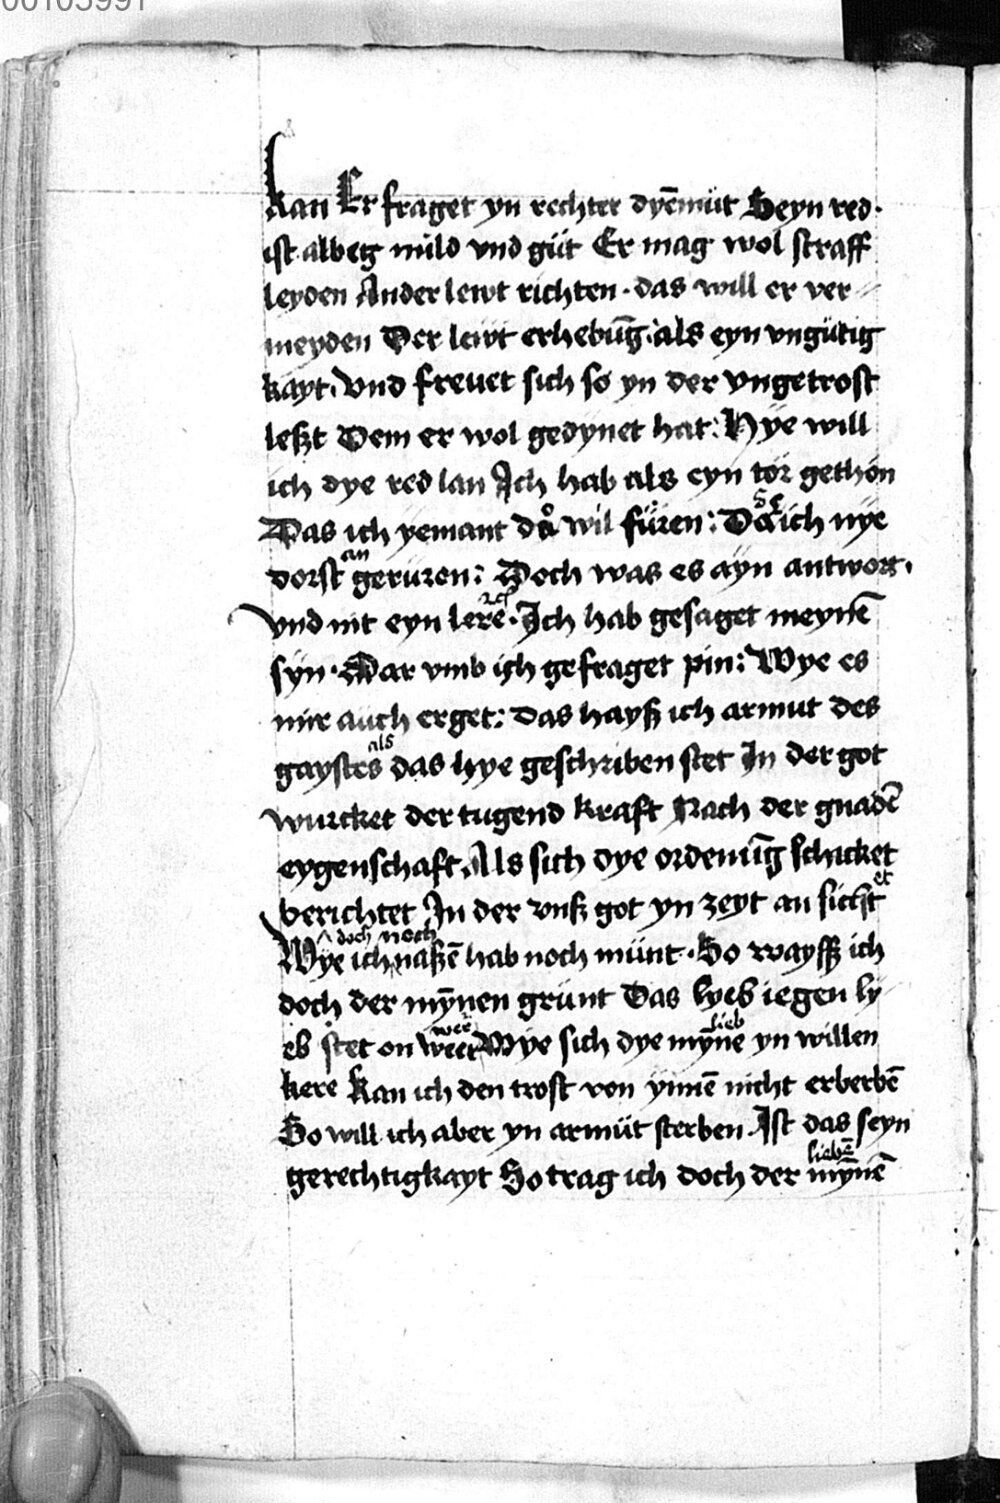 00103991
kan Er fraget yn rechter dyēmüt Seyn red·
ist albeg mild vnd güt Er mag wol straff
leyden Ander lewt richten · das will er ver
meyden Der lewt erhebūg · als eyn vngütig
kayt · Vnd frevet sich so yn der vngetrost
leßzt Dem er wol gedynet hat : Hye will
ich dye red lan Ich hab als eyn tor gethon
Das ich yemant då wil füren : Da ich nye
an
dorst gerüren : Doch was es ayn antwort ·
vnd nit eyn lere · Ich hab gesaget meynē
syn · Dar vmb ich gefraget pin : Wye es
mir auch erget : Das hayß ich armut des
als
gaystes das hye geschriben stet In der got
wurcket der tugend kraft Nach der gnadē
eygenschaft Als sich dye ordenūg schicket
et
berichtet In der vnß got yn zeyt an sicht
doch noch
Wye ich naßē hab noch münt · So wayß ich
doch der mȳnen grunt Das lyeb iegen ly
wer lieb
eb stet on weer Wye sich dye mȳne yn willen
kere Kan ich den trost von ymē nicht erberbē
So will ich aber yn armüt sterben Ist das seyn
liebē
gerechtigkayt So trag ich doch der mȳnē